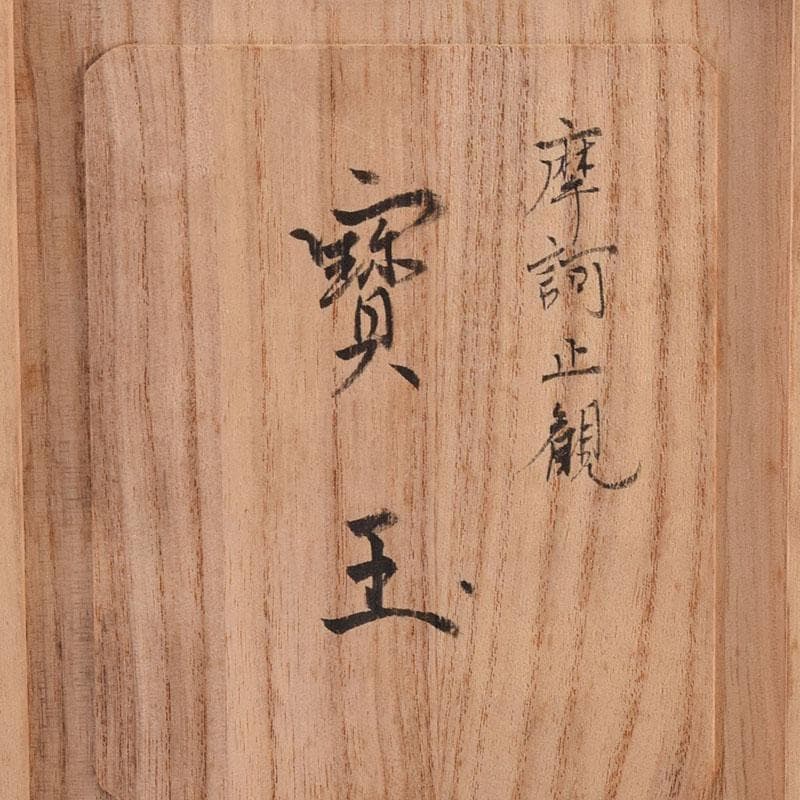 摩訶止観
寳玉